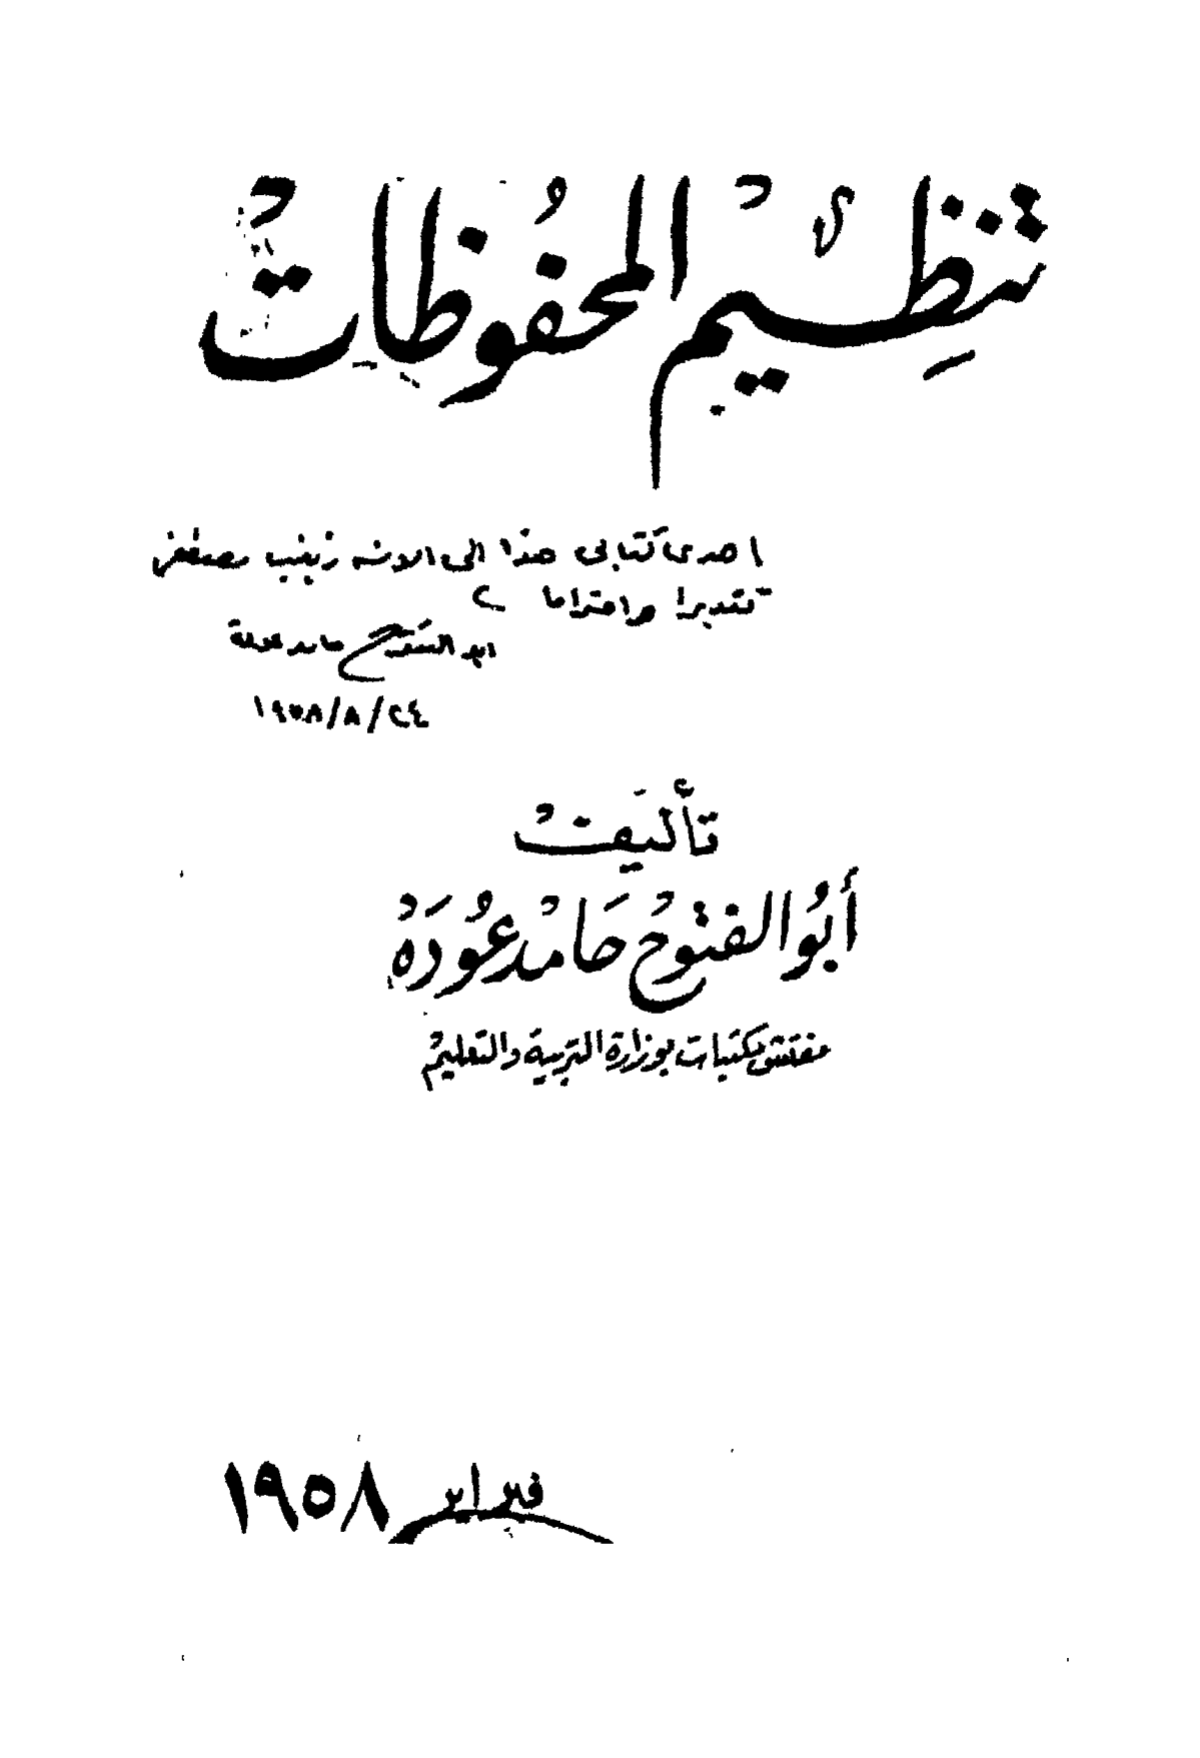 تنظيم المحفوظات
اهدى كتابى هذا الى الآنسة زينب مصطفى
تقديرا واحتراما
ابو الفتوح حامد عودة
٢٤/٨/١٩٥٨
تأليف
أبُو الفتوح حَامدْ عُودَهْ
مفتش مكتبات بوزارة التربية والتعليم
فبراير ١٩٥٨